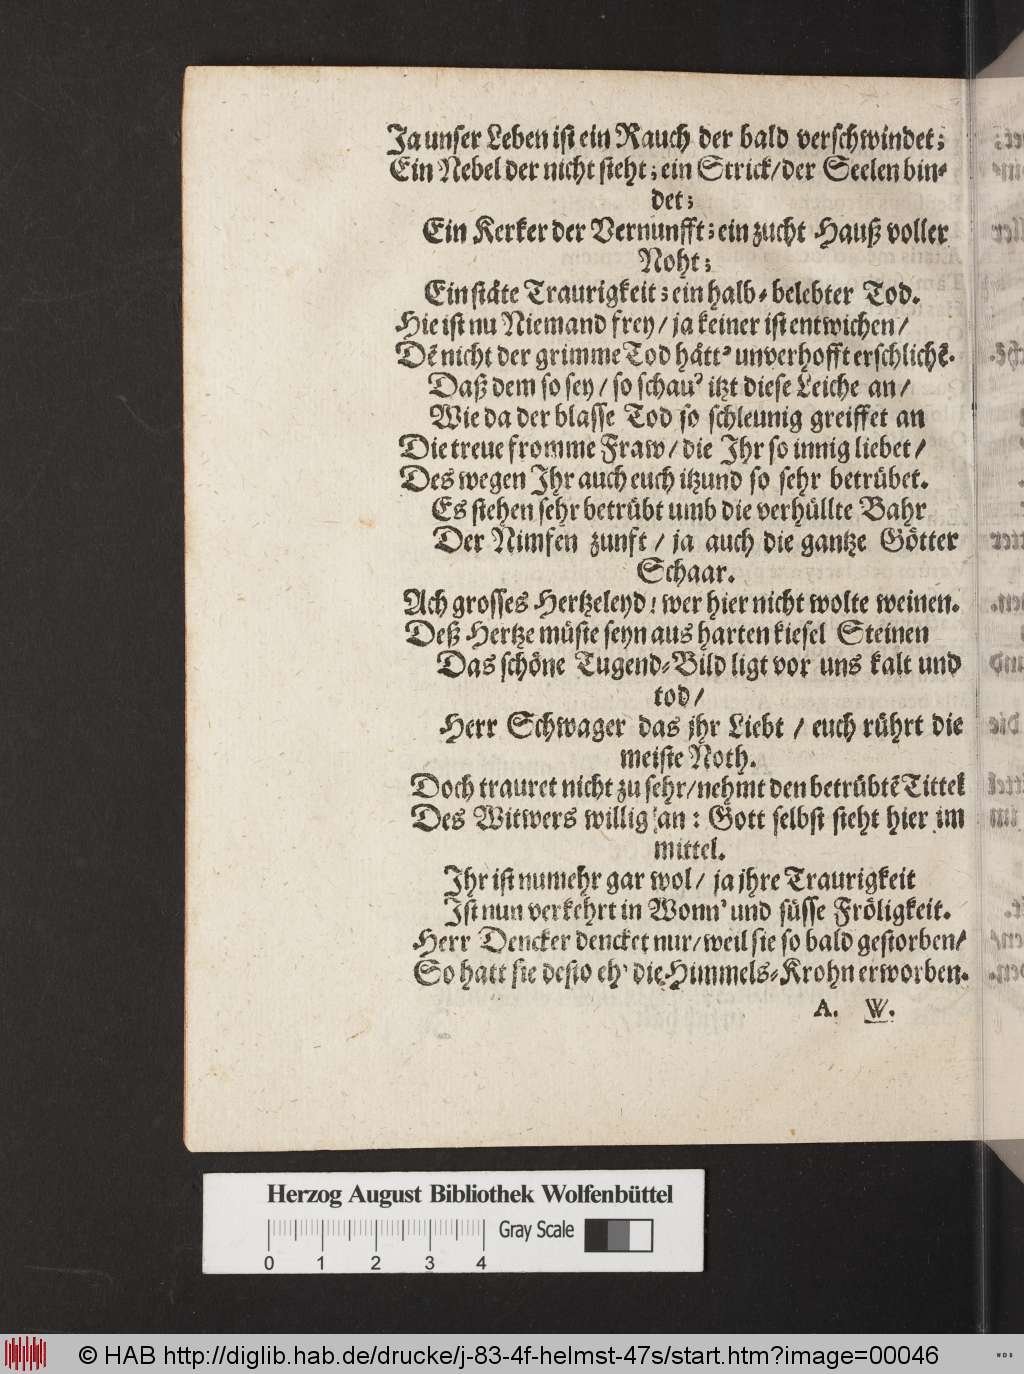 Ja unser Leben ist ein Rauch der bald verschwindet;
Ein Nebel der nicht steht; ein Strick/ der Seelen bin-
det;
Ein Kerker der Vernunfft; ein zucht Hauß voller
Noht;
Ein stäte Traurigkeit; ein halb-belebter Tod.
Hie ist nu Niemand frey/ ja keiner ist entwichen/
Dē nicht der grimme Tod hätt' unverhofft erschlichē.
Daß dem so sey/ so schau' itzt diese Leiche an/
Wie da der blasse Tod so schleunig greiffet an
Die treue fromme Fraw/ die Ihr so innig liebet/
Des wegen Ihr auch euch itzund so sehr betrübet.
Es stehen sehr betrübt umb die verhüllte Bahr
Der Nimfen zunft/ ja auch die gantze Götter
Schaar.
Ach grosses Hertzeleyd! wer hier nicht wolte weinen.
Deß Hertze müste seyn aus harten kiesel Steinen
Das schöne Tugend-Bild ligt vor uns kalt und
tod/
Herr Schwager das jhr Liebt / euch rührt die
meiste Noth.
Doch trauret nicht zu sehr/ nehmt den betrübtē Tittel
Des Witwers willig an: Gott selbst sieht hier im
mittel.
Ihr ist numehr gar wol/ ja jhre Traurigkeit
Ist nun verkehrt in Wonn' und süsse Fröligkeit.
Herr Dencker dencket nur/ weil sie so bald gestorben/
So hatt sie desto eh' die Himmels-Krohn erworben.
A. W.
Herzog August Bibliothek Wolfenbüttel
Gray Scale
0 1 2 3 4
© HAB http://diglib.hab.de/drucke/j-83-4f-helmst-47s/start.htm?image=00046